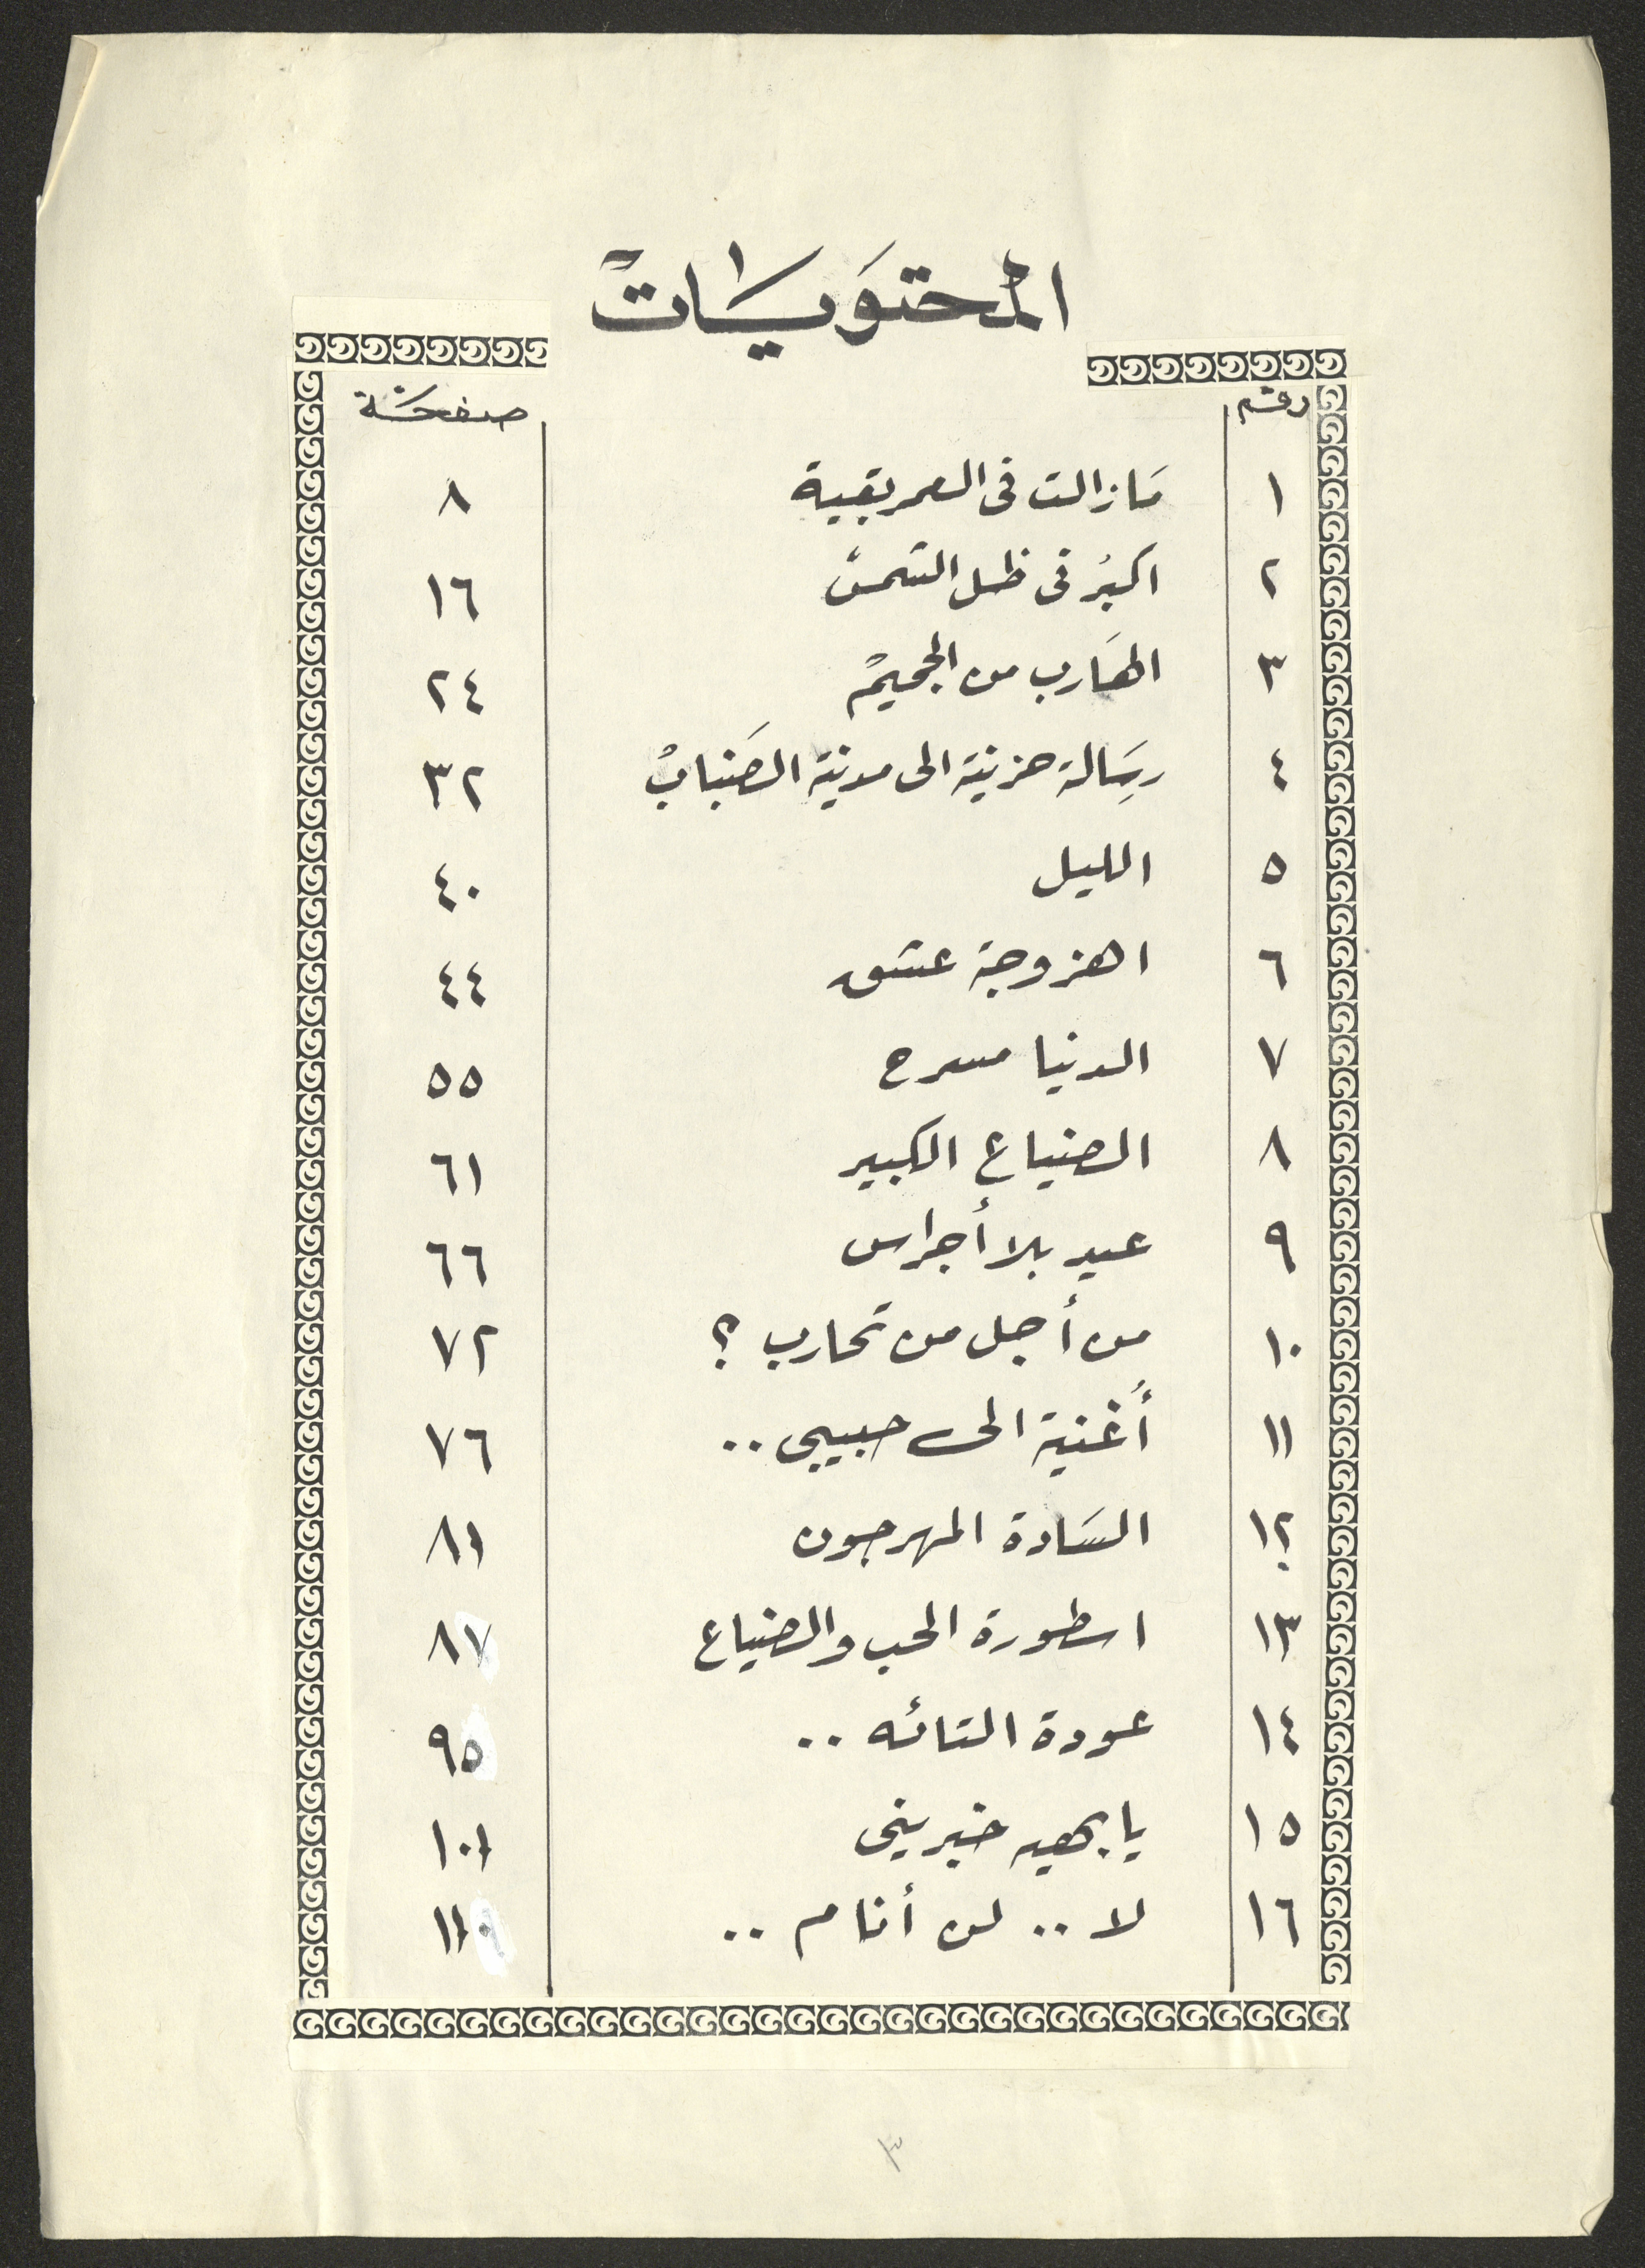 المحتوَيَات
رقم صفحة
١ مَازالت فى العمر بقية ٨
٢ اكبُر فى ظل الشمس ١٦
٣ الهَارب من الجحيم ٢٤
٤ رسَالة حزينة الى مدينة الضَباب ٣٢
٥ الليل ٤٠
٦ اهزوجة عشق ٤٤
٧ الدنيا مسرح ٥٥
٨ الضياع الكبير ٦١
٩ عيد بلا أجراس ٦٦
١٠ من أجل من تحارب ؟ ٧٢
١١ أُغنية الى حبيبى .. ٧٦
١٢ السَادة المهرجون ٨١
١٣ اسطورة الحب والضياع ٨٧
١٤ عودة التائه .. ٩٥
١٥ يا بهيه خبرينى ١٠١
١٦ لا .. لن أنام .. ١١٠
٣